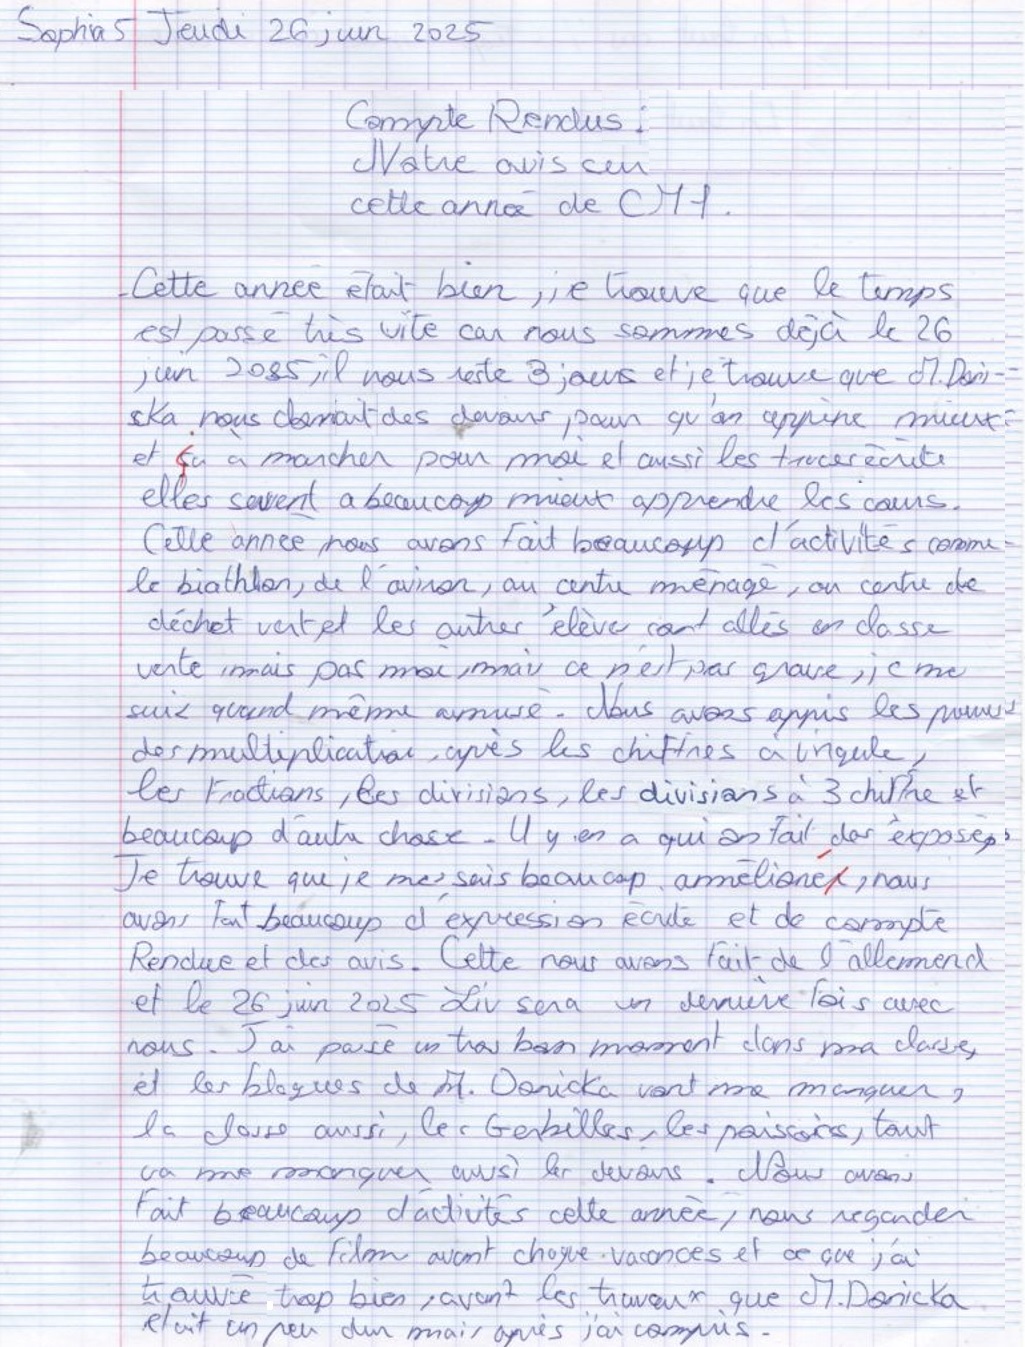 Sophia S Jeudi 26 juin 2025
Compte Rendus :
Notre avis cur
cette anneé de CM1.
Cette année était bien, je trouve que le temps
est passé très vite car nous sommes déjà le 26
juin 2025, il nous reste 3 jours et je trouve que M. Dani-
cka nous donnait des devoirs, pour qu'on apprène mieux
et ça a marcher pour moi et aussi les traces écrite
elles servent a beaucoup mieux apprendre les cours.
Cette année nous avons fait beaucoup d'activités comme
le biathlon, de l'aviron, au centre ménagé, au centre de
déchet vert et les autres élève sont allés en classe
verte mais pas moi, mais ce n'est pas grave, je me
suis quand même amusé. Nous avons appris les
des multiplication, après les chiffres à virgule,
les fractions, les divisions, les divisions à 3 chiffre et
beaucoup d'autre chose. Il y en a qui on fait des exposés
Je trouve que je me suis beaucoup amméliorer, nous
avons fait beaucoup d'éxpression écrite et de compte
Rendue et des avis. Cette nous avons fait de l'allemend
et le 26 juin 2025 Liv sera un dernière fois avec
nous. J'ai passé un tros bon moment dans ma classe,
et les blagues de M. Danicka vont me manquer,
la classe aussi, les Gerbilles, les poissons, tout
va me manquer aussi les devoirs. Nous avons
fait beaucoup d'activités cette année, nous regarder
beaucoup de film avant chaque vacances et ce que j'ai
trouvée trop bien, avant les travaux que M. Danicka
était un peu dur mais après j'ai compris.